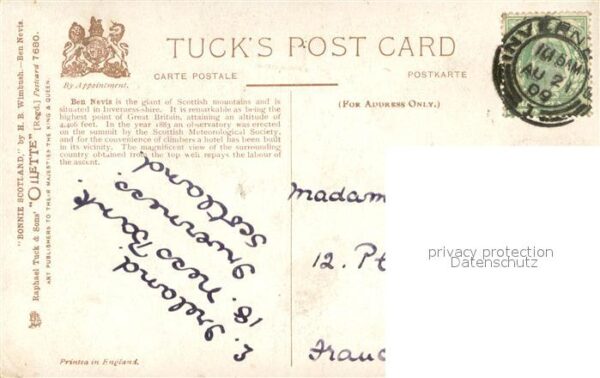 TUCK'S POST CARD
CARTE POSTALE
POSTKARTE
By Appointment.
(FOR ADDRESS ONLY.)
BEN NEVIS is the giant of Scottish mountains and is
situated in Inverness-shire. It is remarkable as being the
highest point of Great Britain, attaining an altitude of
4,406 feet. In the year 1883 an observatory was erected
on the summit by the Scottish Meteorological Society,
and for the convenience of climbers a hotel has been built
in its vicinity. The magnificent view of the surrounding
country obtained from the top well repays the labour of
the ascent.
"BONNIE SCOTLAND," by H. B. Wimbush.—Ben Nevis.
Raphael Tuck & Sons' "OILETTE" [Regd.] Postcard 7680.
ART PUBLISHERS TO THEIR MAJESTIES THE KING & QUEEN.
E. Ireland
18. Ness Bank.
Inverness.
Scotland
Madam
12. Pt
Franc
Printed in England.
INVERNE
AU
09
privacy protection
Datenschutz